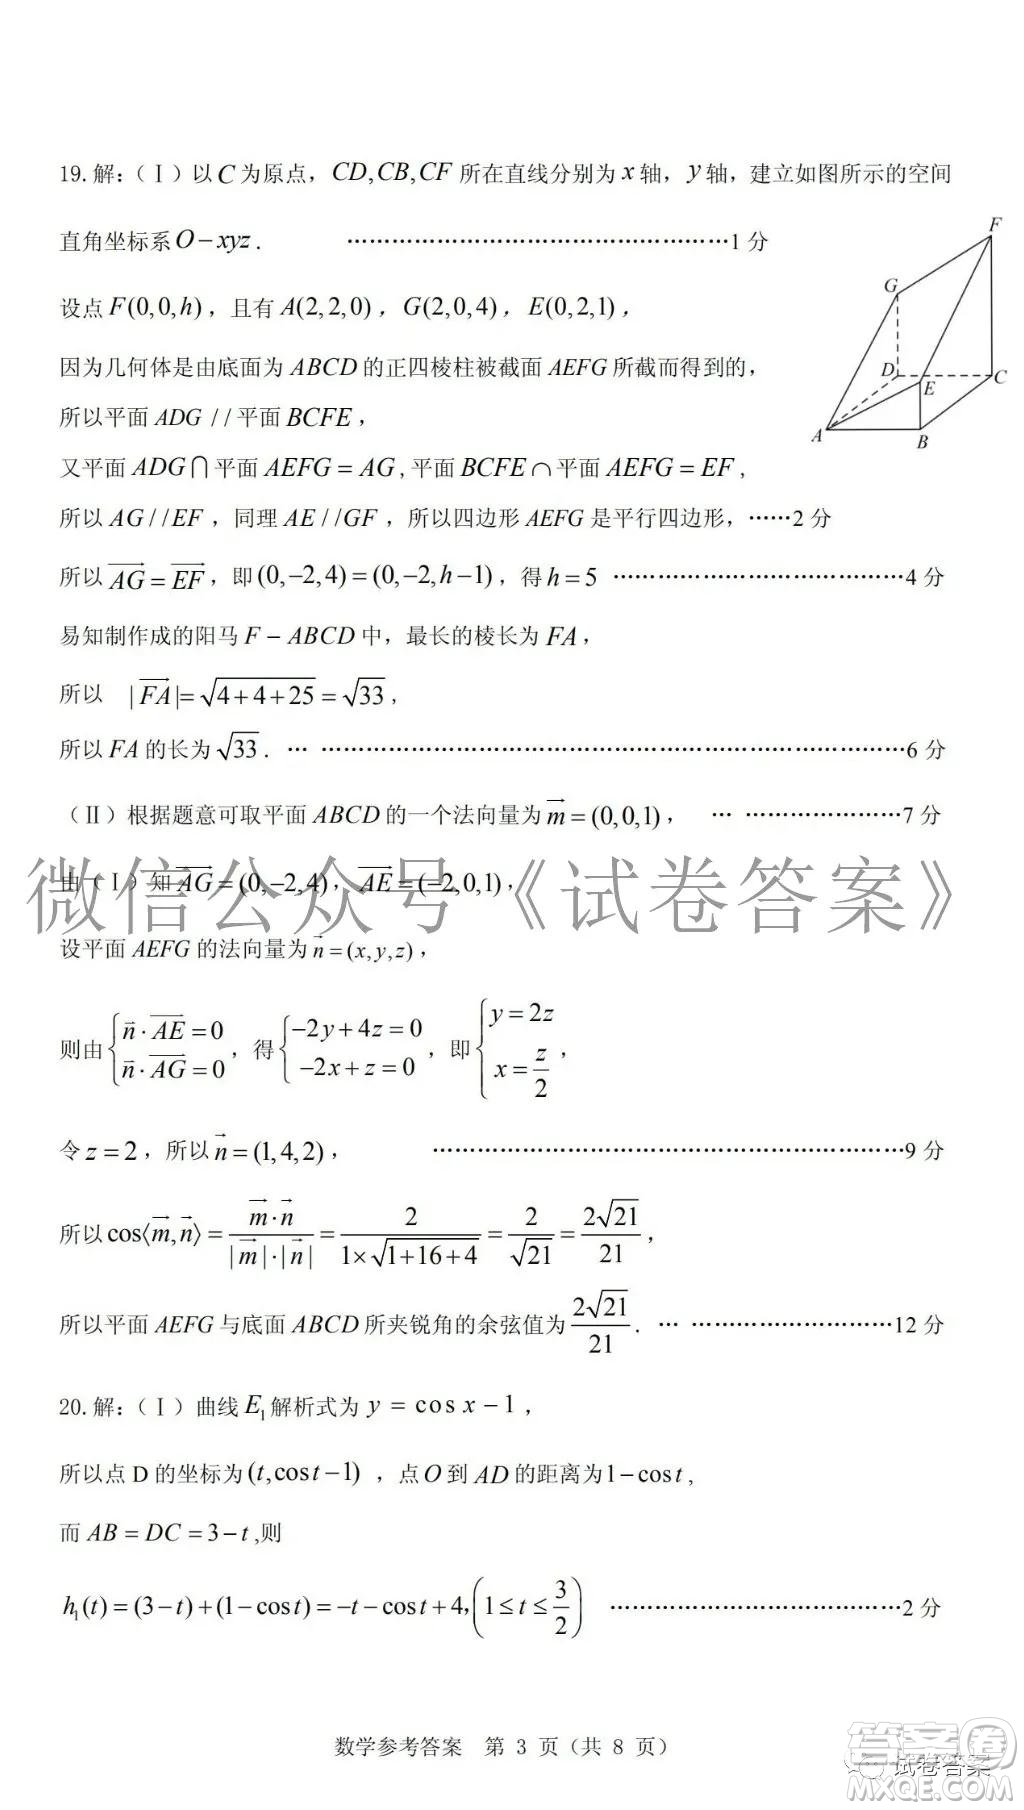 19.解:(Ⅰ)以C为原点，CD,CB,CF所在直线分别为x轴，y轴，建立如图所示的空间
直角坐标系O-xyz. ……………………………………………1分
设点F(0,0,h)，且有A(2,2,0)，G(2,0,4)，E(0,2,1)，
因为几何体是由底面为ABCD的正四棱柱被截面AEFG所截而得到的，
所以平面ADG//平面BCFE，
又平面ADG∩平面AEFG=AG,平面BCFE∩平面AEFG=EF,
所以AG//EF，同理AE//GF，所以四边形AEFG是平行四边形，……2分
所以\overrightarrow{AG}=\overrightarrow{EF}，即(0,-2,4)=(0,-2,h-1)，得h=5 …………………………………4分
易知制作成的阳马F-ABCD中，最长的棱长为FA，
所以 |\overrightarrow{FA}|=√(4+4+25)=√33,
所以FA的长为√33. … ……………………………………………………………………6分
(Ⅱ)根据题意可取平面ABCD的一个法向量为\overrightarrow{m}=(0,0,1)， … ……………………7分
由(Ⅰ)知\overrightarrow{AG}=(0,-2,4)，\overrightarrow{AE}=(-2,0,1)，
微信公众号《试卷答案》
设平面AEFG的法向量为\vec{n}=(x,y,z)，
则由{\vec{n}·\overrightarrow{AE}=0, \vec{n}·\overrightarrow{AG}=0，得{-2y+4z=0, -2x+z=0，即{y=2z, x=z/2，
令z=2，所以\vec{n}=(1,4,2)， ………………………………………………………9分
所以cos⟨\overrightarrow{m},\vec{n}⟩=\overrightarrow{m}·\vec{n}/(|\overrightarrow{m}|·|\vec{n}|)=2/(1×√(1+16+4))=2/√21=2√21/21，
所以平面AEFG与底面ABCD所夹锐角的余弦值为2√21/21. … ………………………12分
20.解:(Ⅰ)曲线E₁解析式为y=cosx-1，
所以点D的坐标为(t,cost-1)，点O到AD的距离为1-cost,
而AB=DC=3-t,则
h₁(t)=(3-t)+(1-cost)=-t-cost+4,(1≤t≤3/2) …………………………………2分
F
G
D
E
C
A
B
数学参考答案 第 3 页（共 8 页）
答案圈
试卷答案
MXQE.COM